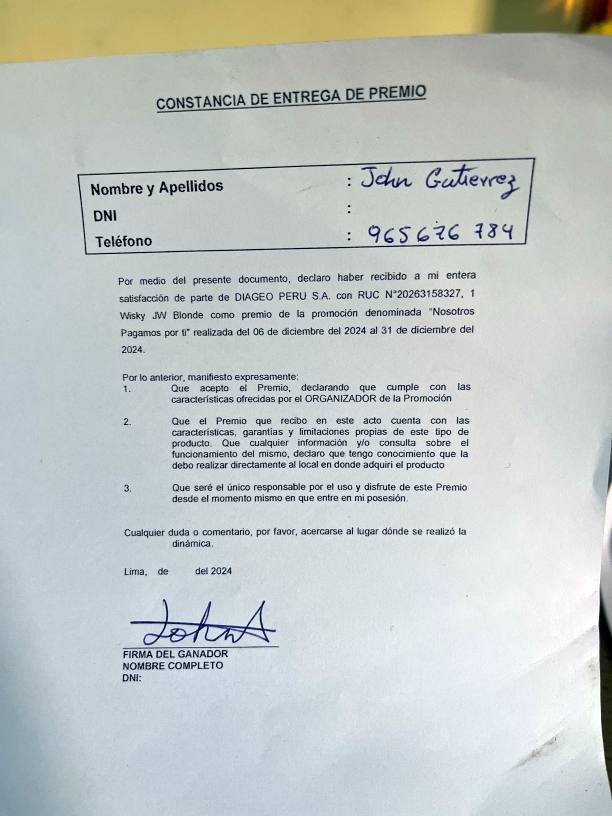 CONSTANCIA DE ENTREGA DE PREMIO
Nombre y Apellidos : John Gutierrez
DNI :
Teléfono : 965676 784
Por medio del presente documento, declaro haber recibido a mi entera
satisfacción de parte de DIAGEO PERU S.A. con RUC N°20263158327, 1
Wisky JW Blonde como premio de la promoción denominada "Nosotros
Pagamos por ti" realizada del 06 de diciembre del 2024 al 31 de diciembre del
2024.
Por lo anterior, manifiesto expresamente:
1. Que acepto el Premio, declarando que cumple con las
características ofrecidas por el ORGANIZADOR de la Promoción
2. Que el Premio que recibo en este acto cuenta con las
características, garantías y limitaciones propias de este tipo de
producto. Que cualquier información y/o consulta sobre el
funcionamiento del mismo, declaro que tengo conocimiento que la
debo realizar directamente al local en donde adquirí el producto
3. Que seré el único responsable por el uso y disfrute de este Premio
desde el momento mismo en que entre en mi posesión.
Cualquier duda o comentario, por favor, acercarse al lugar dónde se realizó la
dinámica.
Lima, de del 2024
FIRMA DEL GANADOR
NOMBRE COMPLETO
DNI: